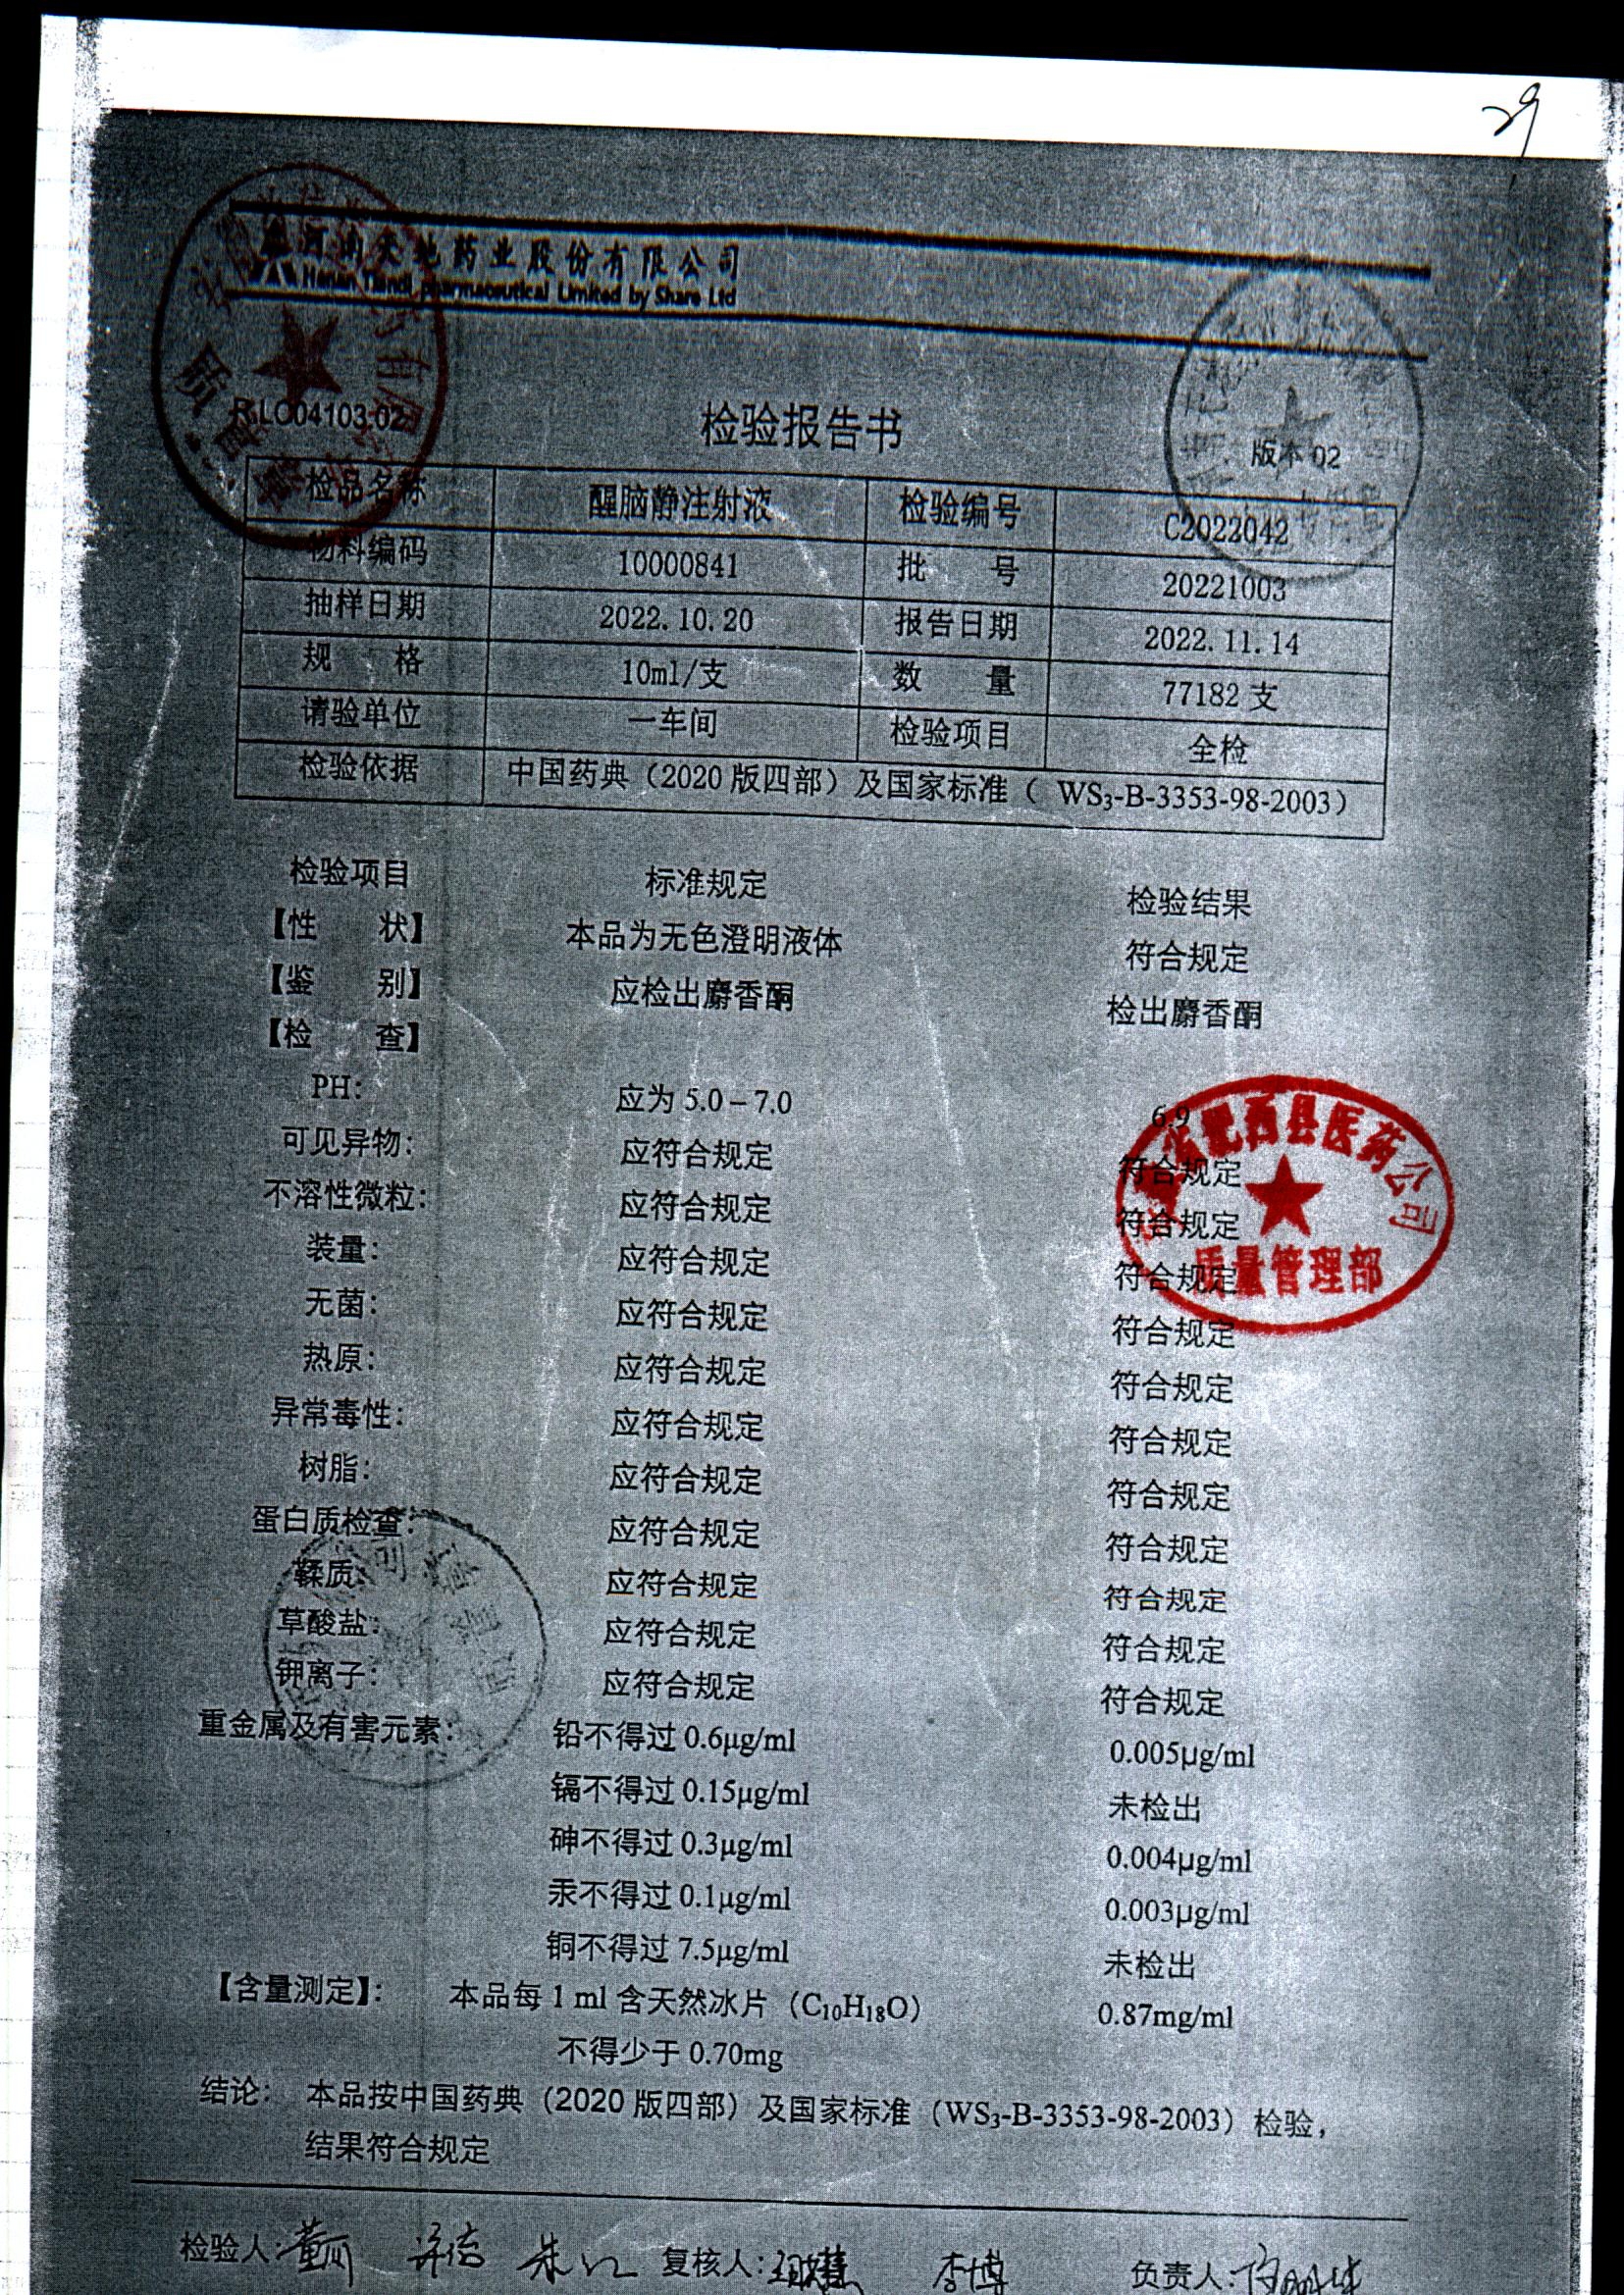 29
河南天地药业股份有限公司
Henan Tiandi pharmaceutical Limited by Share Ltd
LC04103-02
检验报告书
版本 02
检品名称 醒脑静注射液 检验编号 C2022042
物料编码 10000841 批 号 20221003
抽样日期 2022.10.20 报告日期 2022.11.14
规 格 10ml/支 数 量 77182 支
请验单位 一车间 检验项目 全检
检验依据 中国药典（2020 版四部）及国家标准（ WS₃-B-3353-98-2003）
检验项目 标准规定 检验结果
【性 状】 本品为无色澄明液体 符合规定
【鉴 别】 应检出麝香酮 检出麝香酮
【检 查】
PH： 应为 5.0－7.0 6.9
可见异物： 应符合规定 符合规定
不溶性微粒： 应符合规定 符合规定
装量： 应符合规定 符合规定
无菌： 应符合规定 符合规定
热原： 应符合规定 符合规定
异常毒性： 应符合规定 符合规定
树脂： 应符合规定 符合规定
蛋白质检查： 应符合规定 符合规定
鞣质： 应符合规定 符合规定
草酸盐： 应符合规定 符合规定
钾离子： 应符合规定 符合规定
重金属及有害元素： 铅不得过 0.6μg/ml 0.005μg/ml
镉不得过 0.15μg/ml 未检出
砷不得过 0.3μg/ml 0.004μg/ml
汞不得过 0.1μg/ml 0.003μg/ml
铜不得过 7.5μg/ml 未检出
【含量测定】： 本品每 1 ml 含天然冰片（C₁₀H₁₈O） 0.87mg/ml
不得少于 0.70mg
结论： 本品按中国药典（2020 版四部）及国家标准（WS₃-B-3353-98-2003）检验，
结果符合规定
检验人： 复核人： 李博 负责人：
肥西县医药公司
质量管理部